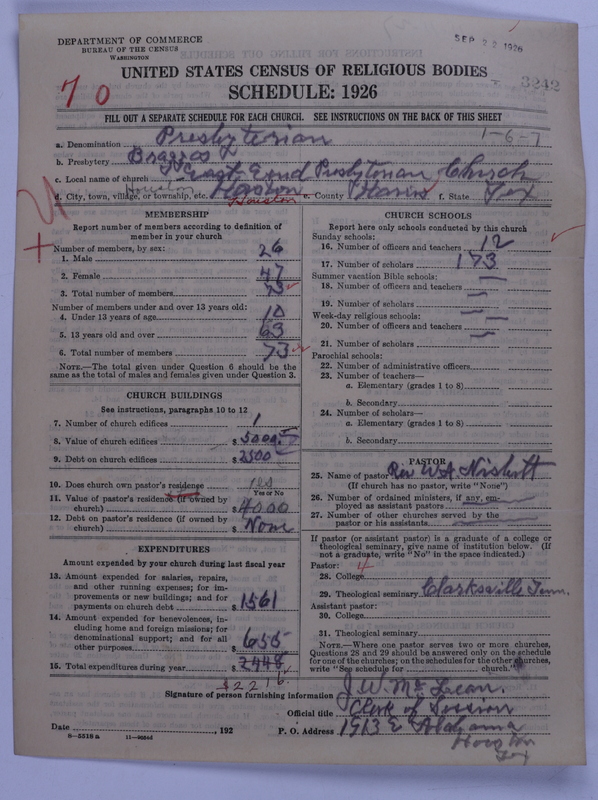 DEPARTMENT OF COMMERCE
BUREAU OF THE CENSUS
WASHINGTON
SEP 22 1926
UNITED STATES CENSUS OF RELIGIOUS BODIES
SCHEDULE: 1926
3242
70
FILL OUT A SEPARATE SCHEDULE FOR EACH CHURCH. SEE INSTRUCTIONS ON THE BACK OF THIS SHEET
1-6-7
a. Denomination Presbyterian
b. Presbytery Brazos
c. Local name of church East End Presbyterian Church
d. City, town, village, or township, etc. Houston e. County Harris f. State Tex
Houston
MEMBERSHIP
Report number of members according to definition of member in your church
Number of members, by sex:
1. Male 26
2. Female 47
3. Total number of members 73
Number of members under and over 13 years old:
4. Under 13 years of age 10
5. 13 years old and over 63
6. Total number of members 73
NOTE.—The total given under Question 6 should be the same as the total of males and females given under Question 3.
CHURCH BUILDINGS
See instructions, paragraphs 10 to 12
7. Number of church edifices 1
8. Value of church edifices $5000
9. Debt on church edifices $2500
10. Does church own pastor's residence yes
Yes or No
11. Value of pastor's residence (if owned by church) $4000
12. Debt on pastor's residence (if owned by church) $None
EXPENDITURES
Amount expended by your church during last fiscal year
13. Amount expended for salaries, repairs, and other running expenses; for improvements or new buildings; and for payments on church debt $1561
14. Amount expended for benevolences, including home and foreign missions; for denominational support; and for all other purposes $655
15. Total expenditures during year $2448
$2216
CHURCH SCHOOLS
Report here only schools conducted by this church
Sunday schools:
16. Number of officers and teachers 12
17. Number of scholars 173
Summer vacation Bible schools:
18. Number of officers and teachers
19. Number of scholars
Week-day religious schools:
20. Number of officers and teachers
21. Number of scholars
Parochial schools:
22. Number of administrative officers
23. Number of teachers—
a. Elementary (grades 1 to 8)
b. Secondary
24. Number of scholars—
a. Elementary (grades 1 to 8)
b. Secondary
PASTOR
25. Name of pastor Rev W.A. Nisbett
(If church has no pastor, write "None")
26. Number of ordained ministers, if any, employed as assistant pastors
27. Number of other churches served by the pastor or his assistants
If pastor (or assistant pastor) is a graduate of a college or theological seminary, give name of institution below. (If not a graduate, write "No" in the space indicated.)
Pastor: 4
28. College
29. Theological seminary Clarksville Tenn.
Assistant pastor:
30. College
31. Theological seminary
NOTE.—Where one pastor serves two or more churches, Questions 28 and 29 should be answered only on the schedule for one of the churches; on the schedules for the other churches, write "See schedule for church."
Signature of person furnishing information J. W. McLean.
Official title Clerk of Session
Date , 192
P. O. Address 1913 E Alabama
Houston
Tex
8—5518a 11—9554d